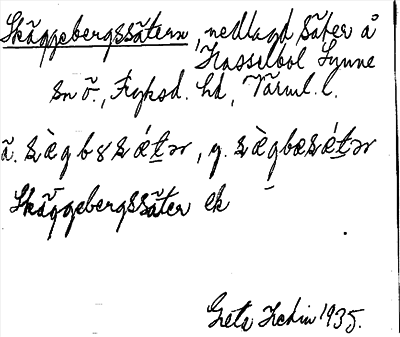 Skäggebergssätern, nedlagd säter å
Hasselbol Sunne
sn ö., Fryksd. hd, Värml. l.
ä. sὲgbssétər, y. sægbæssétər
Skäggebergssäter ek
Greta Hedin 1935.